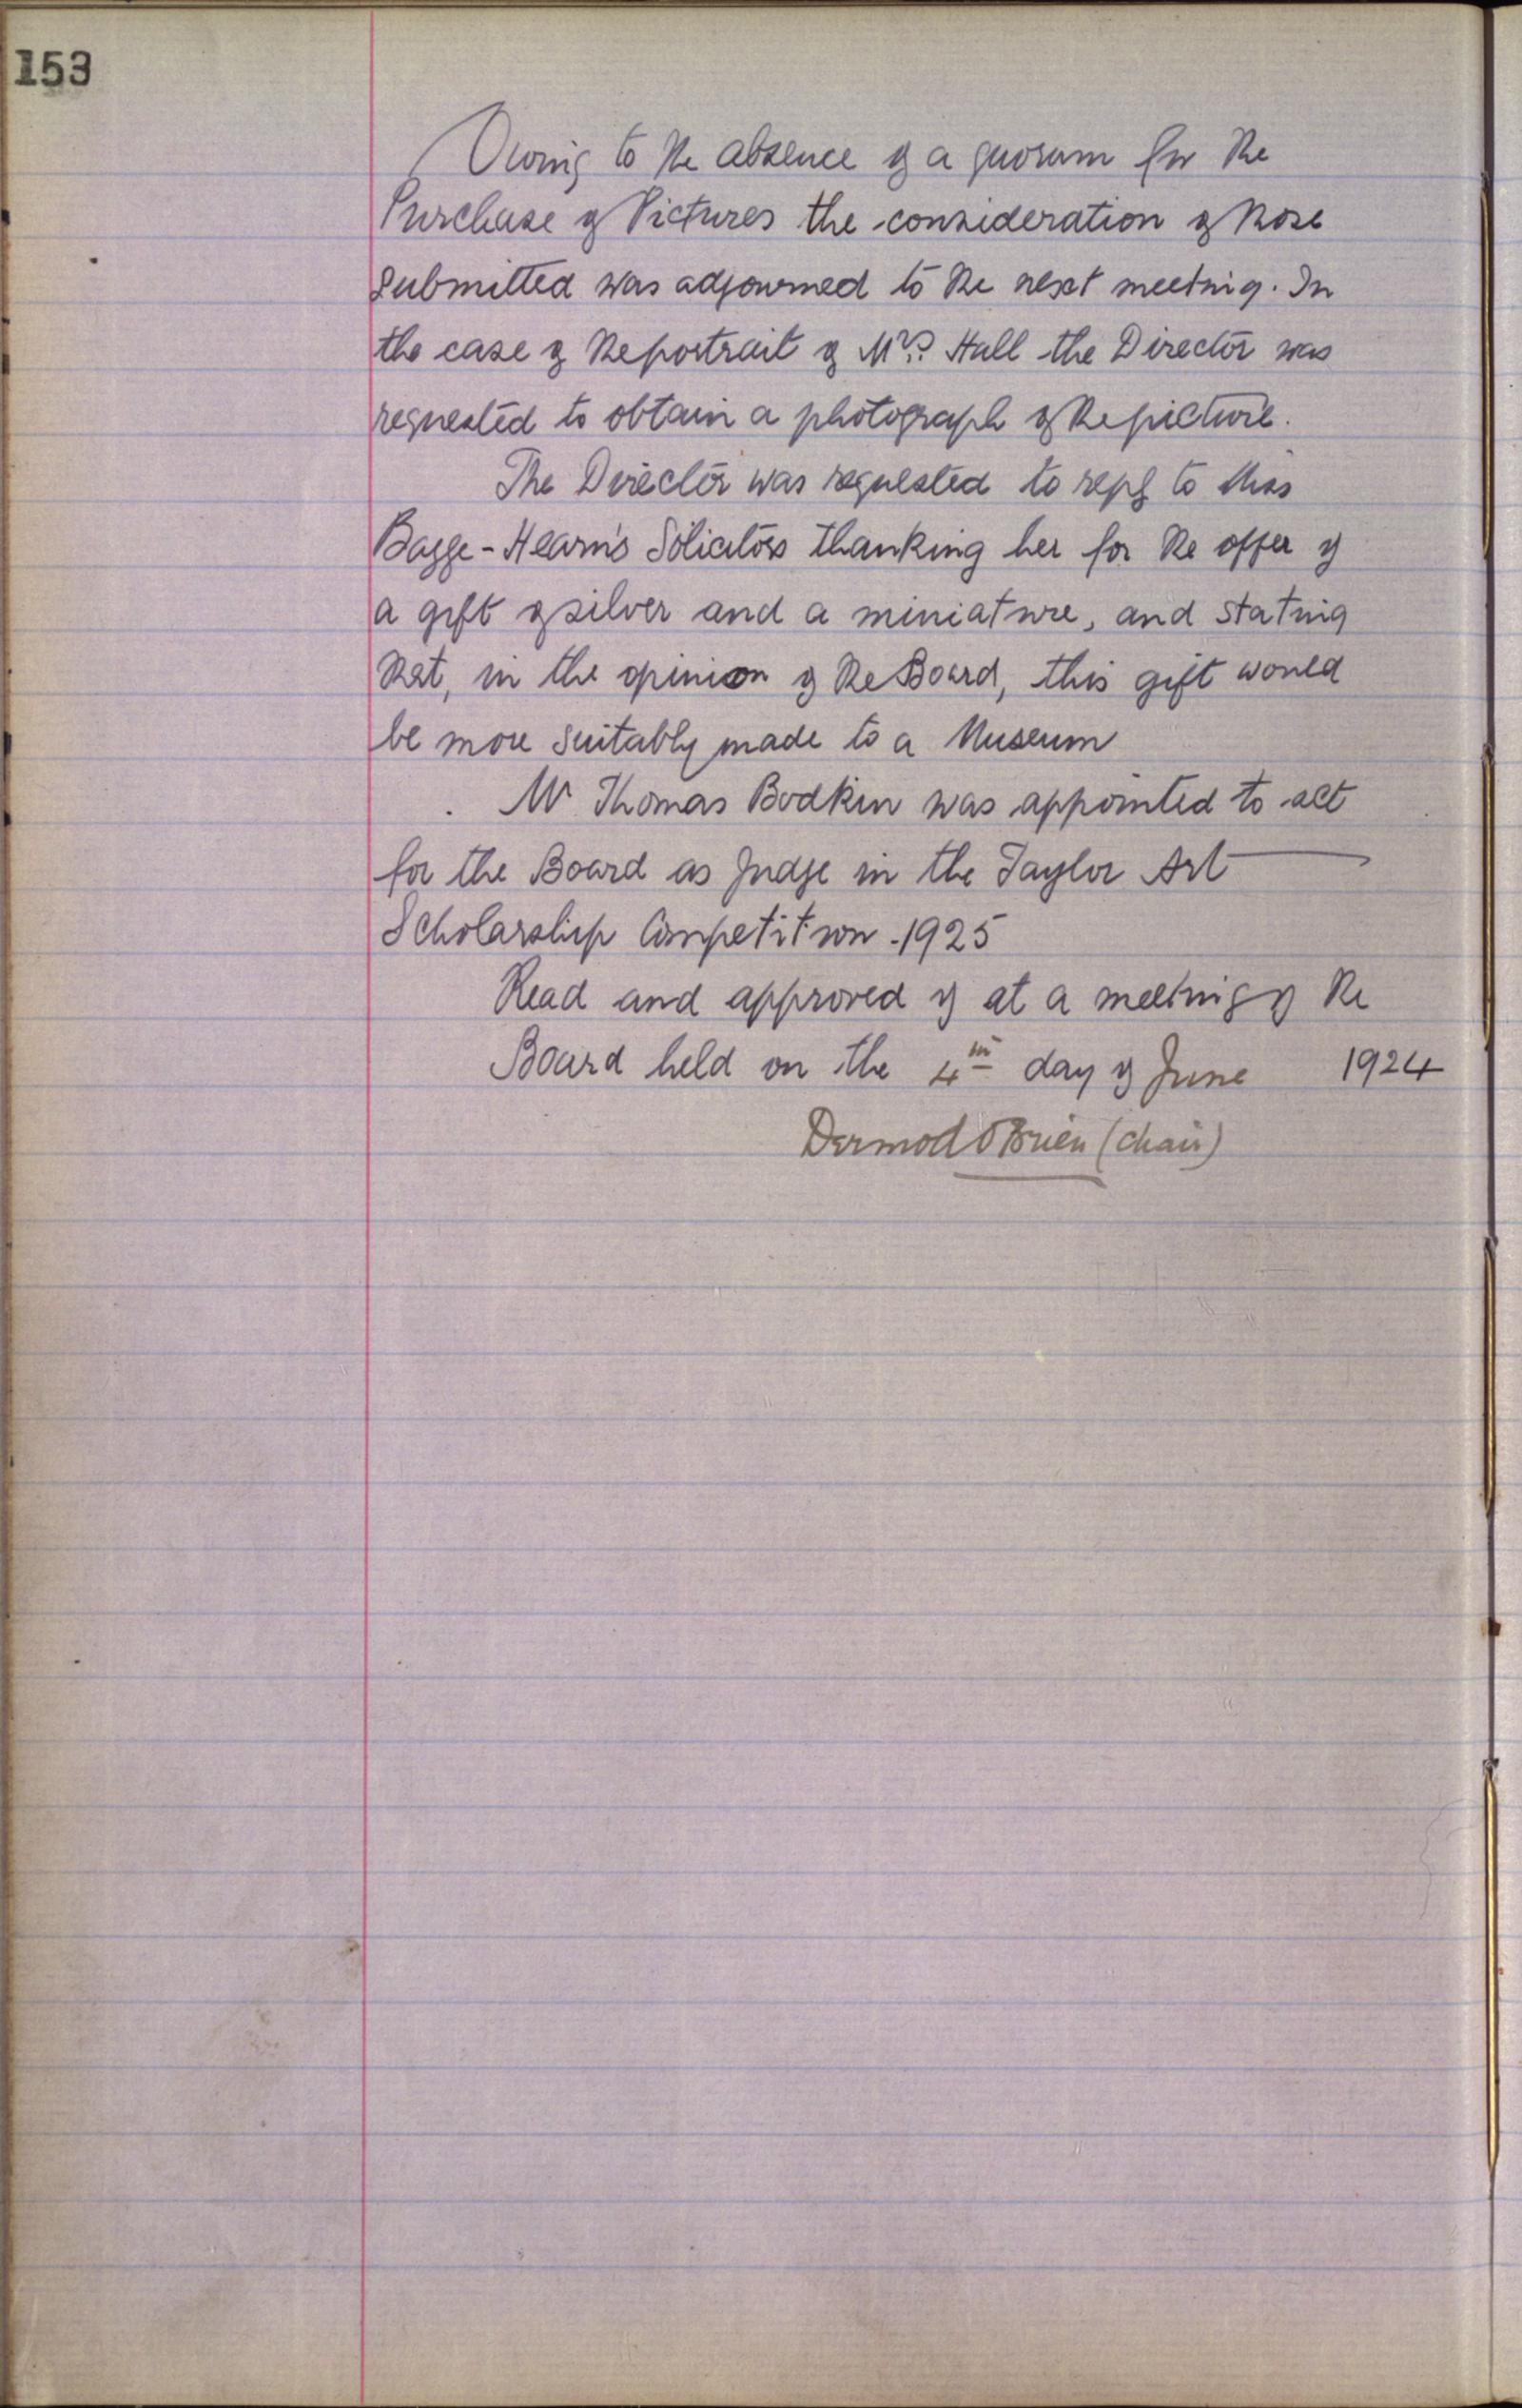 153
Owing to the absence of a quorum for the
Purchase of Pictures the consideration of those
submitted was adjourned to the next meeting. In
the case of the portrait of Mrs. Hall the Director was
requested to obtain a photograph of the picture.
The Director was requested to reply to Miss
Bagge-Hearn's Solicitors thanking her for the offer of
a gift of silver and a miniature, and stating
that, in the opinion of the Board, this gift would
be more suitably made to a Museum
Mr Thomas Bodkin was appointed to act
for the Board as Judge in the Taylor Art
Scholarship Competition - 1925
Read and approved of at a meeting of the
Board held on the 4th day of June 1924
Dermod O'Brien (chair)